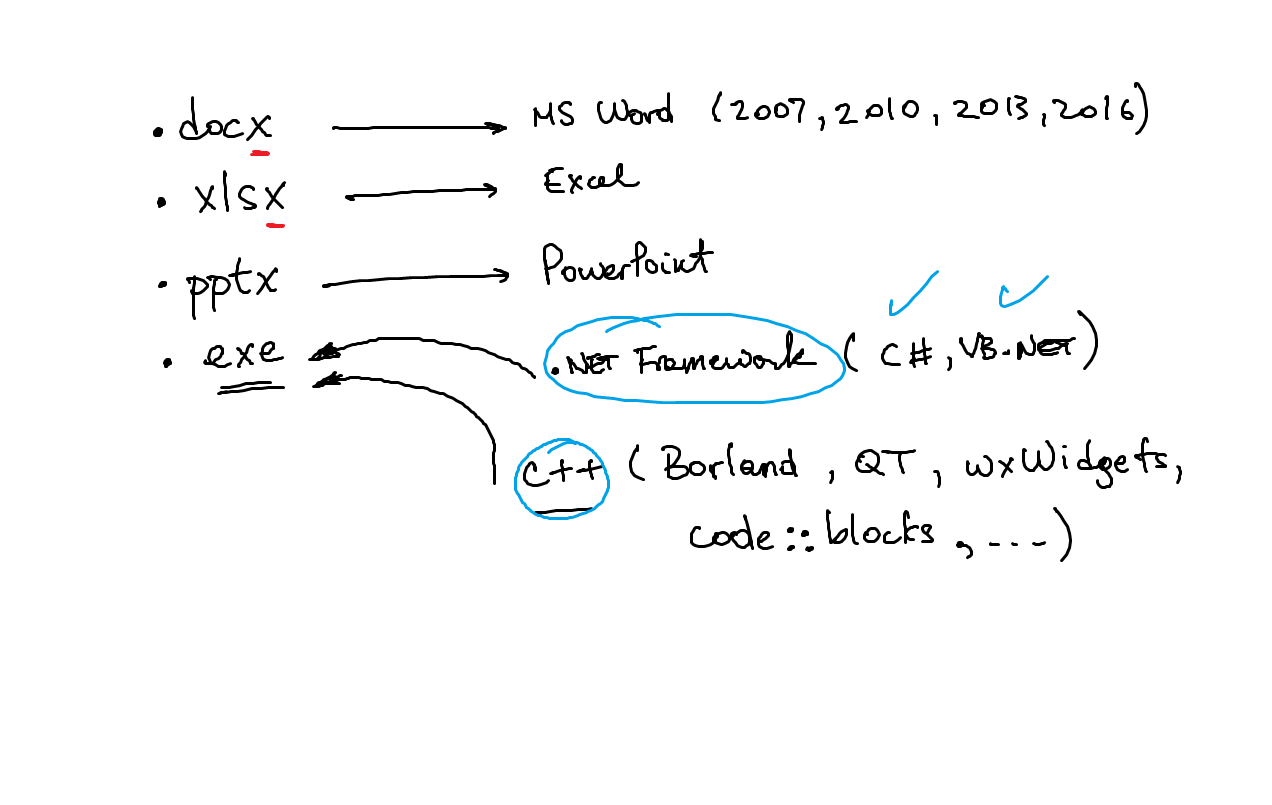 .docx → MS Word (2007, 2010, 2013, 2016)
.xlsx → Excel
.pptx → PowerPoint
.exe ← .NET Framework (C#, VB.NET)
C++ (Borland, QT, wxWidgets,
code::blocks, ....)